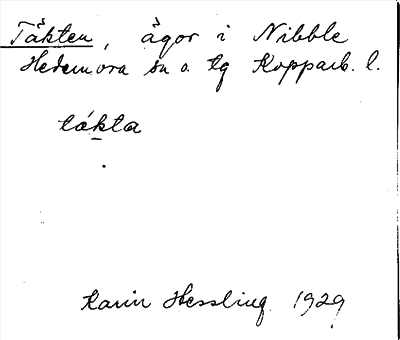 Täkten, ägor i Nibble
Hedemora sn o. tg Kopparb. l.
tákta
Karin Hessling 1929